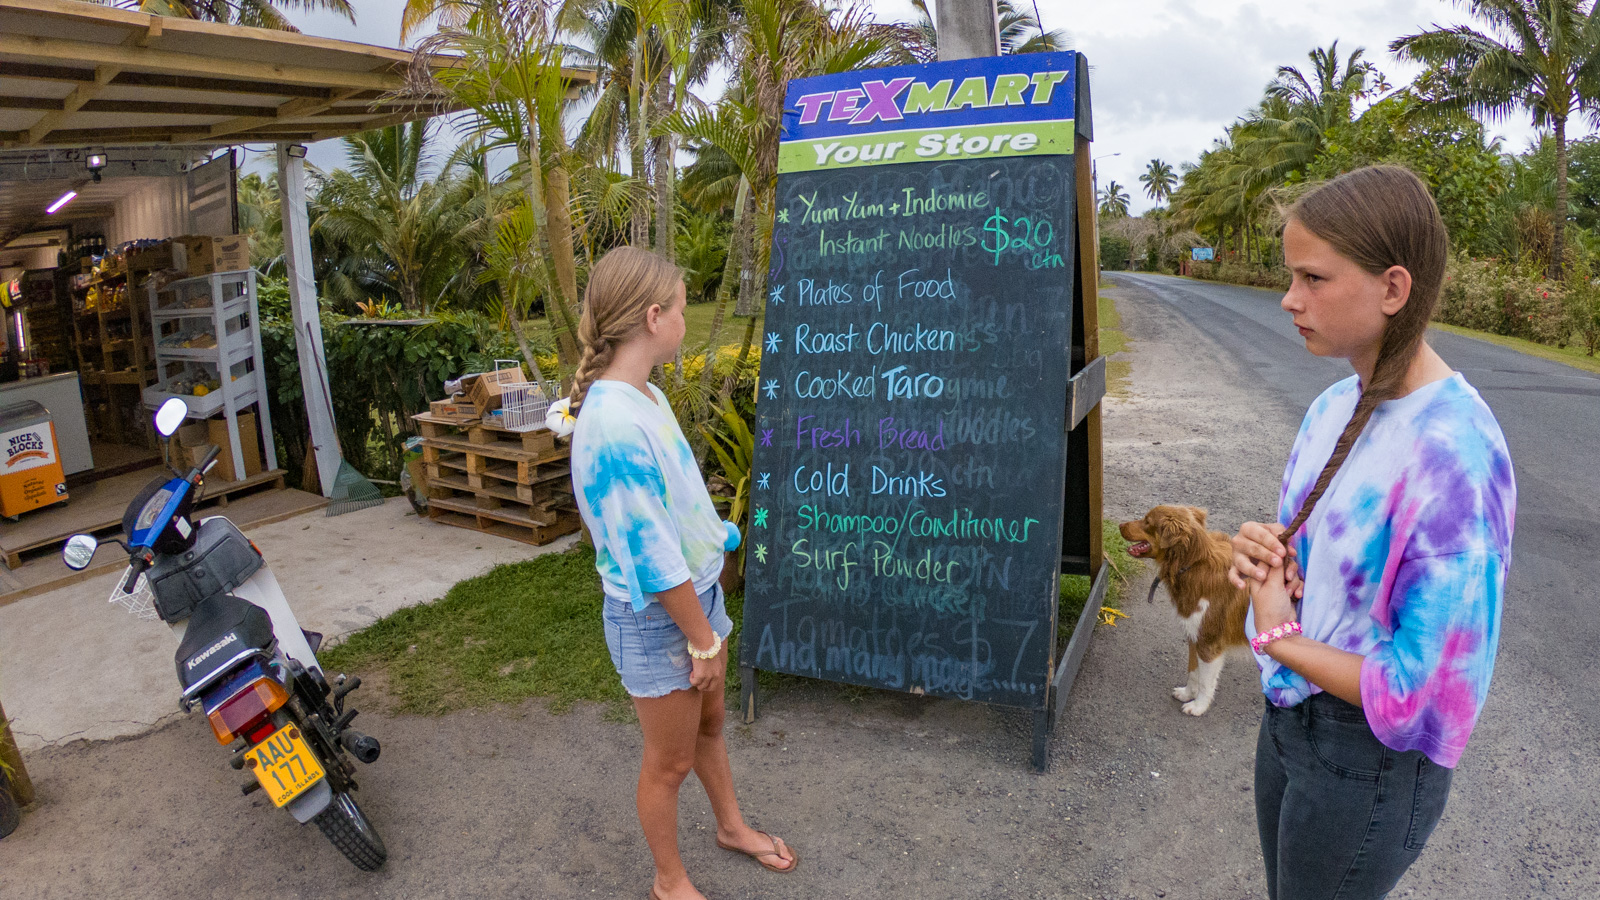 TEXMART
Your Store
* Yum Yum + Indomie
Instant Noodles $20 ctn
* Plates of Food
* Roast Chicken
* Cooked Taro
* Fresh Bread
* Cold Drinks
* Shampoo/Conditioner
* Surf Powder
Tomatoes $7
And many more.....
NICE
BLOCKS
Kawasaki
AAU
177
COOK ISLANDS